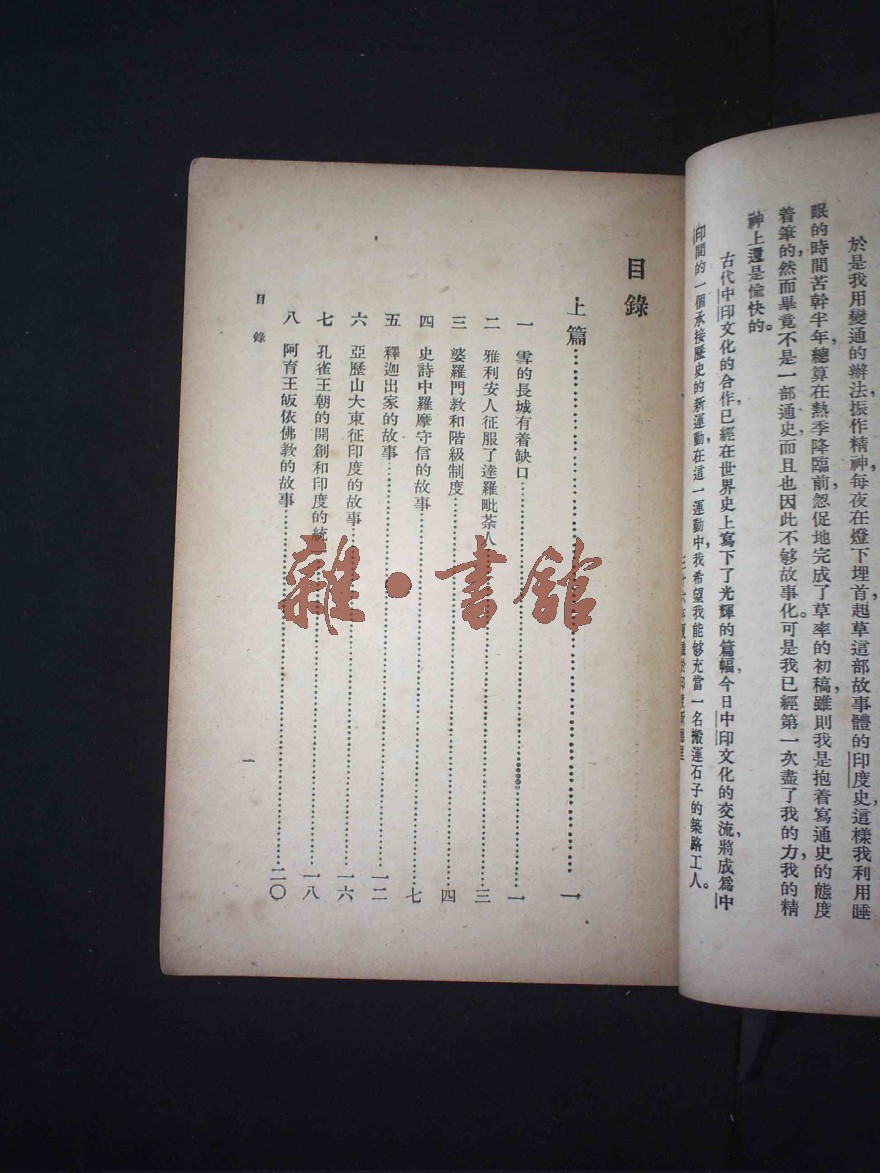 於是我用變通的辦法振作精神，每夜在燈下埋首，起草這部故事體的印度史，這樣我利用睡
眠的時間苦幹半年，總算在熱季降臨前，怱促地完成了草率的初稿，雖則我是抱着寫通史的態度
着筆的，然而畢竟不是一部通史，而且也因此不够故事化。可是我已經第一次盡了我的力，我的精
神上還是愉快的。
古代中印文化的合作，已經在世界史上寫下了光輝的篇幅，今日中印文化的交流，將成爲中
印間的一個承接歷史的新運動，在這一運動中，我希望我能够充當一名搬運石子的築路工人。
目錄
上篇……一
一 雪的長城有着缺口……一
二 雅利安人征服了達羅毗荼人……三
三 婆羅門教和階級制度……四
四 史詩中羅摩守信的故事……七
五 釋迦出家的故事……一二
六 亞歷山大東征印度的故事……一六
七 孔雀王朝的開創和印度的統……一八
八 阿育王皈依佛教的故事……二〇
目錄
一
雜·書館